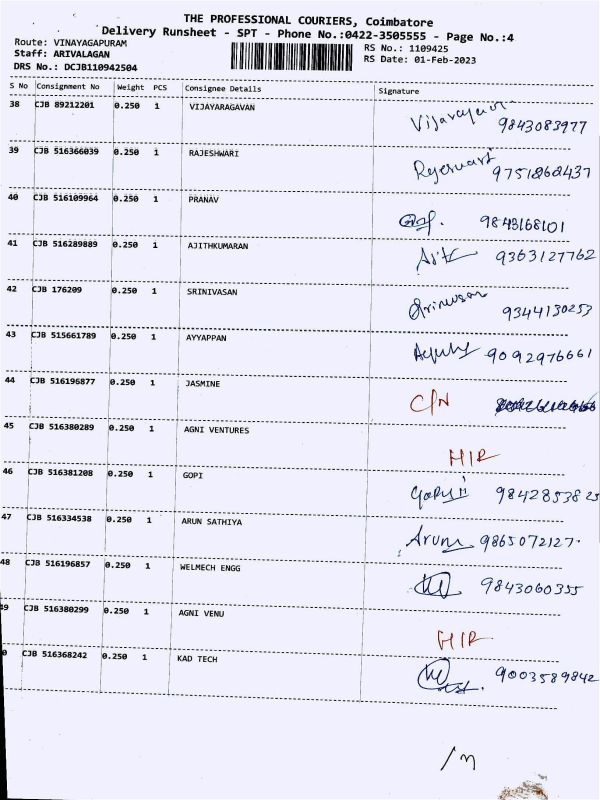 THE PROFESSIONAL COURIERS, Coimbatore
Delivery Runsheet - SPT - Phone No.:0422-3505555 - Page No.:4
Route: VINAYAGAPURAM
Staff: ARIVALAGAN
DRS No.: DCJB110942504
RS No.: 1109425
RS Date: 01-Feb-2023
S No Consignment No Weight PCS Consignee Details Signature
38 CJB 89212201 0.250 1 VIJAYARAGAVAN 9843083977
39 CJB 516366039 0.250 1 RAJESHWARI 9751868437
40 CJB 516109964 0.250 1 PRANAV 9843168101
41 CJB 516289889 0.250 1 AJITHKUMARAN Ajith 9363127762
42 CJB 176209 0.250 1 SRINIVASAN 9344130253
43 CJB 515661789 0.250 1 AYYAPPAN 9092976661
44 CJB 516196877 0.250 1 JASMINE C/N
45 CJB 516380289 0.250 1 AGNI VENTURES HIR
46 CJB 516381208 0.250 1 GOPI 9842853825
47 CJB 516334538 0.250 1 ARUN SATHIYA Arun 9865072127.
48 CJB 516196857 0.250 1 WELMECH ENGG 9843060355
49 CJB 516380299 0.250 1 AGNI VENU HIR
0 CJB 516368242 0.250 1 KAD TECH 9003589842